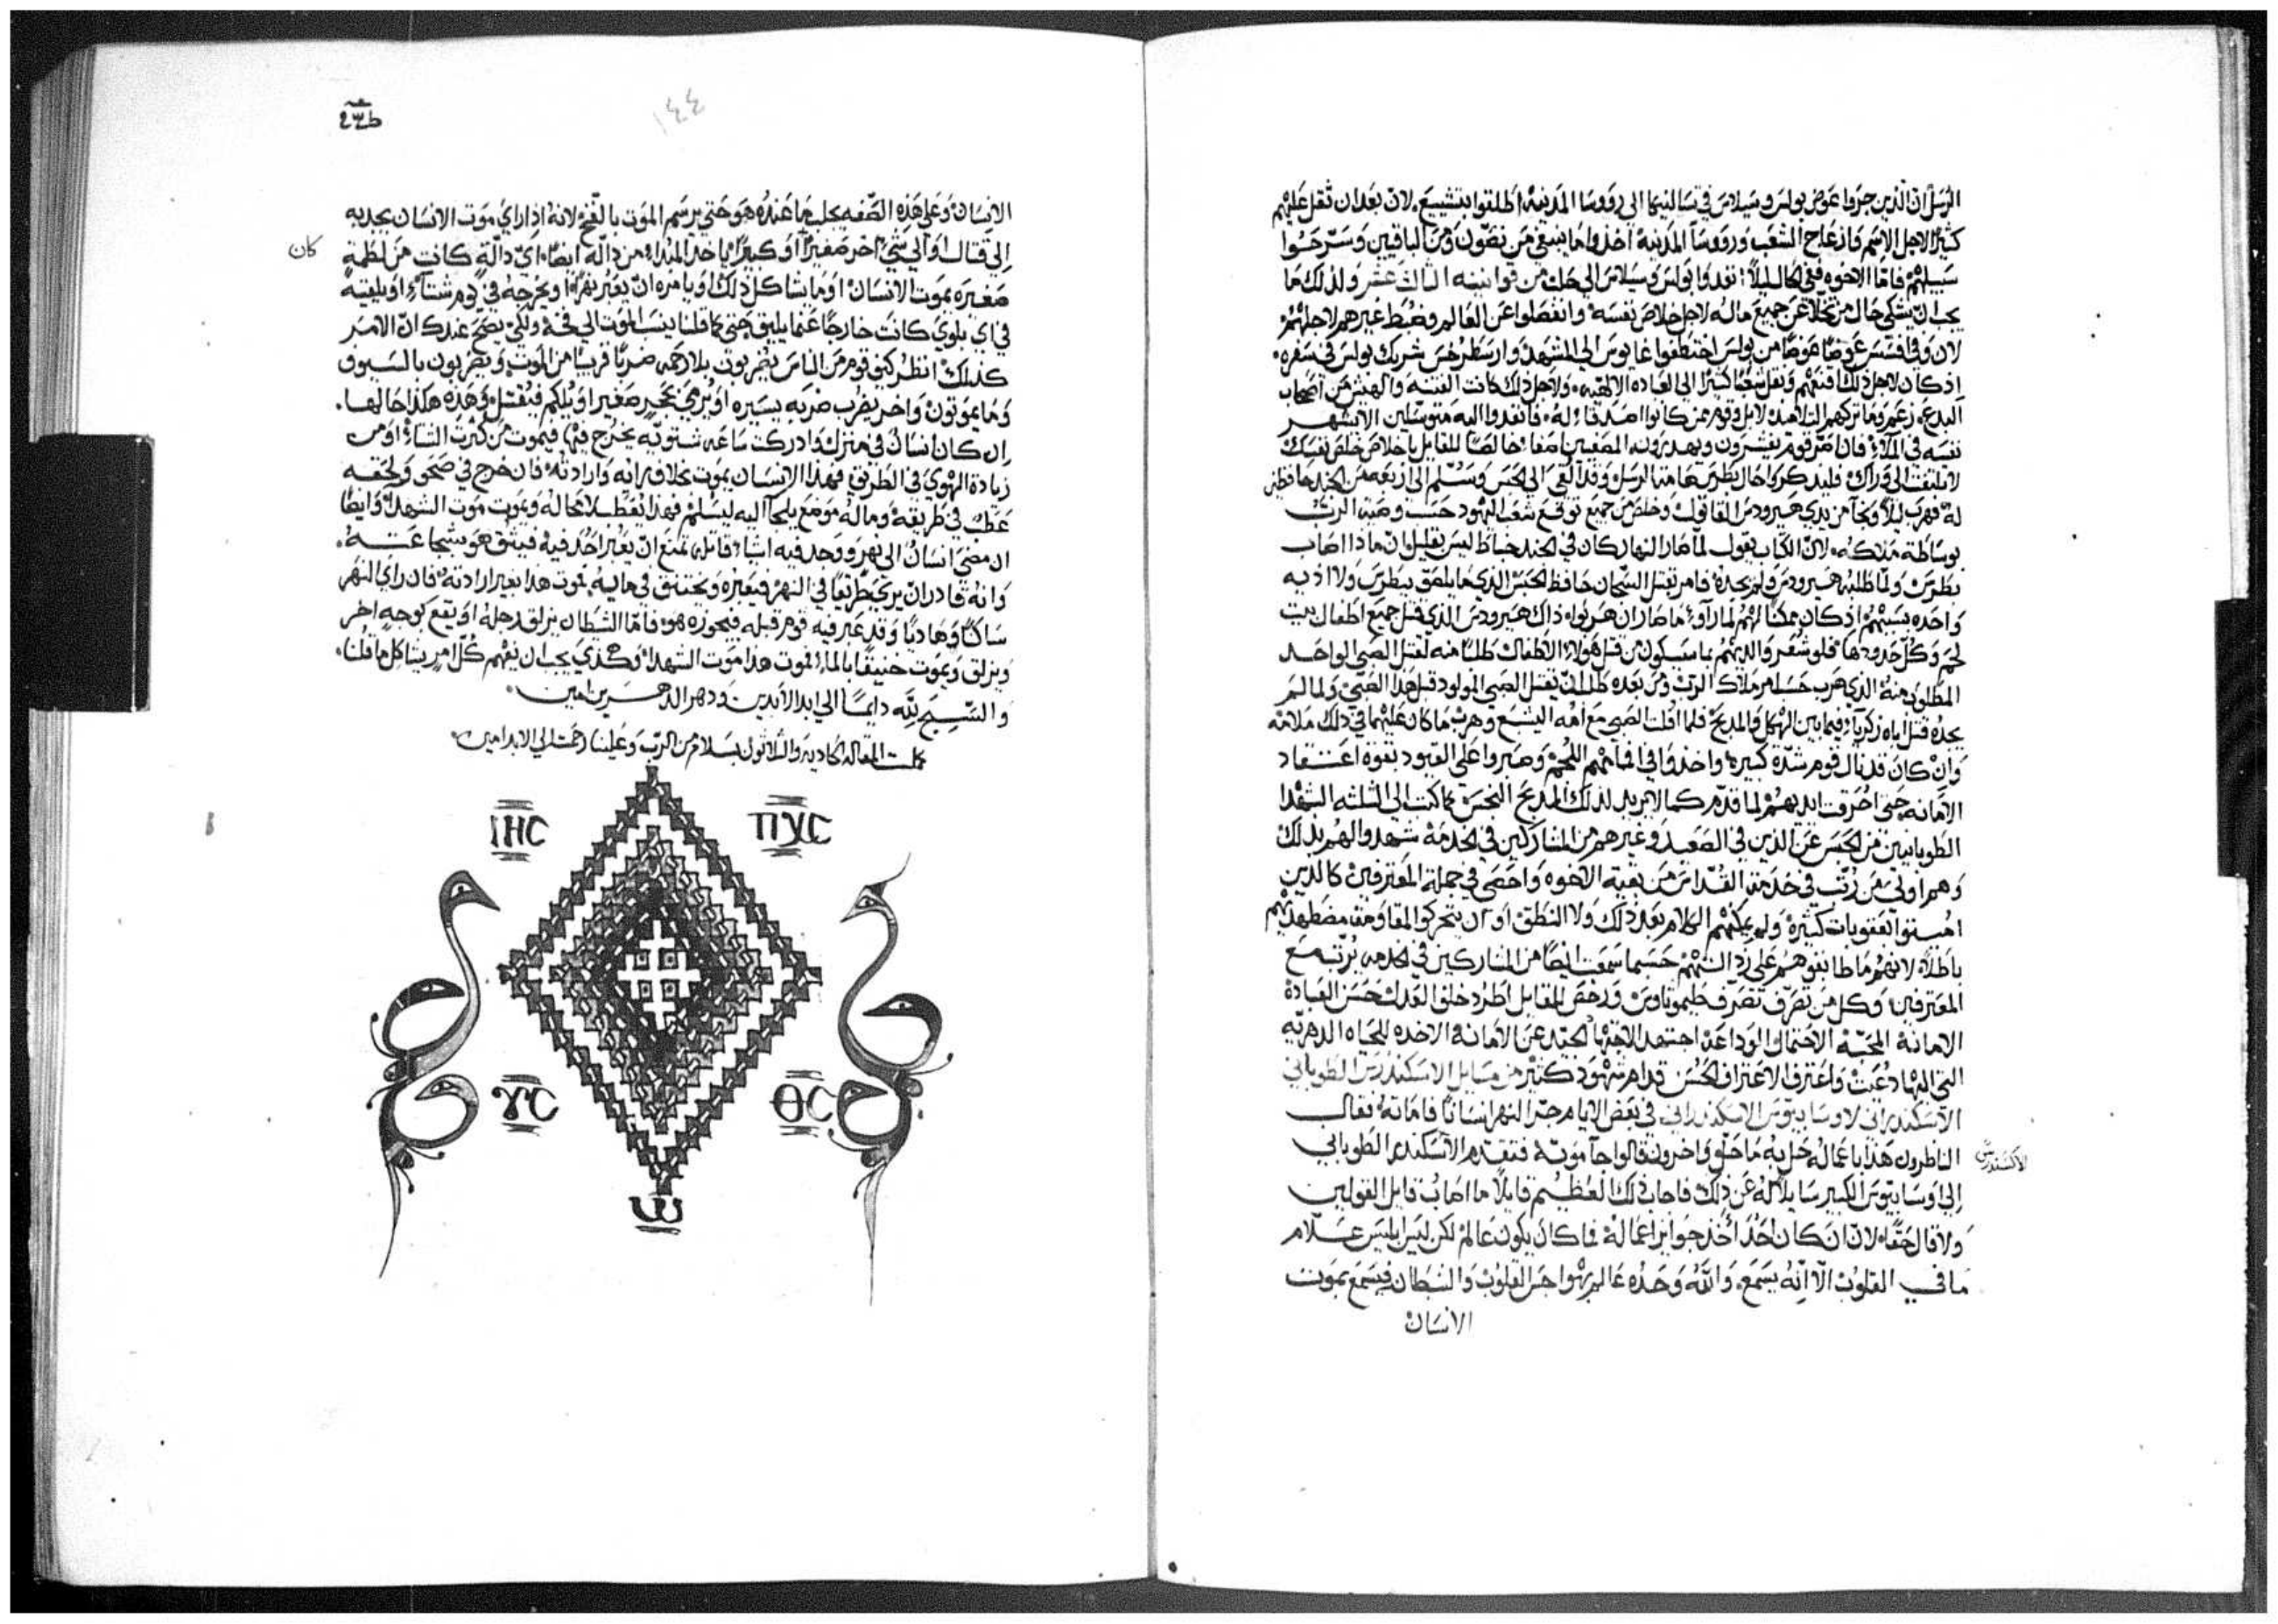 الرسل ان الذين جروا عوض بولس وسيلاس في تسالنيكا الي رووسا المدينه اطلقوا بتشييع لان بعد ان ثقل عليهم
كثيرًا لاجل الاسم وازعاج الشعب ورووسا المدينه اخذوا ما ينبغي من نصون ومن الباقيين وسرحوا
سبيلهم فاما الاخوه ففي الحال ليلاً نفدوا بولس وسيلاس الي حلب من قوانينه الثالث عشر ولذلك ما
يجب ان يشتكي حال من تخلا عن جميع ماله لاجل خلاص نفسه وانفصلوا عن العالم وضبط غيرهم لاجلهم
لان وفي افسس عوضًا عوضًا من بولس اختطفوا غايوس الي المشهد وارسطرخس شريك بولس في سفره
اذ كان لاجل ذلك اقنعهم ونقل شعبًا كثيرًا الي العباده الالهيه ولاجل ذلك كانت الفتنه والهيج من اصحاب
البدع زعم وما تركهم التلاميد لا بل وقوم ممن كانوا اصدقا له فانفدوا اليه متوسلين الا يشهر
نفسه في الملا فان امر قوم
لا تلتفت الي وراك فليدكروا حال بطرس هامة الرسل وقد القي الي الحبس وسلم الي اربعه من الجند حافظين
له فهرب ليلاً ونجا من يدي هيرودس القاتول وخلص من جميع توقع شعب اليهود حسب وصية الرب
بوساطة ملاكه لان الكتاب يقول لما صار النهار كان في الجند خباط ليس بقليل ان ماذا اصاب
بطرس ولما طلبه هيرودس ولم يجده فامر بقتل السجان حافظ الحبس الذي ما يلصق ببطرس ولا اذيه
واحده بسببهم اذ كان ممكنًا لهم لما راوه ما صار ان هربوا ذاك هيرودس الذي قتل جميع اطفال بيت
لحم وكل حدودها فلو شعر والديهم بما سيكون من قبل هولاء الاطفال طلبًا منه لقتل الصبي الواحد
المطلوب منه الذي هرب حسب امر ملاك الرب ومن بعده طلب ان يقتل الصبي المولود قبل هذا الصبي ولما لم
يجده قتل اباه زكريا فيما بين الهيكل والمدبح فلما افلت الصبي مع امه اليشبع وهرب ما كان عليهما في ذلك ملامه
وان كان قد نال قوم شده كبيره واخذوا في افامهم اللحم وصبروا علي القيود بقوة اعتقاد
الامانه حتي احرقت ايديهم لما قدم كمالا يريد لذلك المدبح النجس كما كتب الي الثلثه الشهدا
الطوبانيين من الحبس عن الذين في الصعيد وغيرهم من المشاركين في الخدمة شهدوا لهم بذلك
وهم اولي من رتب في خدمة القداس من بقية الاخوه واحصي في جملة المعترفين كالذين
امتحنوا بعقوبات كثيره ولم يمكنهم الكلام بعد ذلك ولا النطق او ان يتحركوا لمقاومة مضطهديهم
باطلاً لانهم ما طابقوهم علي رد السنتهم حسبما سمعت ايضًا من المشاركين في الخدمه يرتب مع
المعترفين وكل من تصرف تصرف طيموثاوس ورخص للقايل اطرد خلف العدل حسن العبادة
الامانة المحبة الاحتمال الوداعة اجتهد الاجتهاد الجيد عن الامانة الاخده للحياه الدهريه
التي اليها دعيت واعترف الاعتراف الحسن قدام شهود كثير من مسايل الاسكندرس الطوباني
الاسكندراني لاوسابيوس الاسكندراني في بعض الايام جر النهر انسانًا فاماته فقال
الناظرون هذا باعماله حل به ما حل واخرون قالوا جا موته فتقدم الاسكندر الطوباني
الاكسندرس
الي اوسابيوس الكبير سايلاً له عن ذلك فاجاب ذلك العظيم قايلاً ما اصاب قايل القولين
ولا قال حقًا لان ان كان احد اخذ جوايز اعماله فما كان يكون عالم لكن ليس ابليس علام
ما في القلوب الا انه يسمع والله وحده عالم بهواجس القلوب والشيطان فيسمع بموت
الانسان
١٤٤
الانسان وعلي هذه الصفه يجلب ما عنده هو حتي يرسم الموت بالفخ لانه اذا راي موت الانسان يجدبه
الي قتال او الي شي اخر صغيرًا او كبيرًا ياخد المبدا من داله ايضًا اي دالة كانت من لطمة
كان
صغيره بموت الانسان او ما شاكل ذلك او يامره ان يعبر نهرًا او يخرجه في يوم شتاء او يلقيه
في اي بلوي كانت خارجًا عما يليق حتي كما قلنا ينسب الموت الي فخه ولكي يصح عندك ان الامر
كذلك انظر كيف قوم من الناس يضربون بلا رحمه ضربًا قريبًا من الموت ويضربون بالسيوف
وما يموتون واخر يضرب ضربه يسيره او يرمي بحجر صغير او يلكم فيقتل وهذه هكذا حالها.
ان كان انسان في منزل وادركت ساعه شتويه يخرج فيها فيموت من كثرت الشتاء او من
زيادة الهوي في الطريق فهذا الانسان يموت بخلاف رايه وارادته فان خرج في صحو ولحقه
عطب في طريقه وماله موضع يلجا اليه ليسلم فهذا يعطب لا محاله ويموت موت الشهدا وايضًا
ان مضي انسان الي نهر ووجد فيه اشيا قايله تمنع ان يعبر احد فيه فيثق هو بشجاعته
وانه قادر ان يري طريقًا في النهر فيعبره ويختنق في مايه يموت هذا بغير ارادته فان راي النهر
ساكنًا وهاديًا وقد عبر فيه قوم قبله فيجوزه هو فاما الشيطان يزلق رجله او يقع كوجه اخر
ويزلق ويموت خنيقًا بالماء يموت هذا موت الشهدا وهكذي يجب ان نفهم كل امر يشاكل ما قلنا
والتسبيح لله دايمًا الي ابد الابدين ودهر الداهرين امين
كملت المقاله الحاديه والثلاثون بسلام من الرب وعلينا رحمته الي الابد امين
ΙΗС ΠΧС
ΥС ΘС